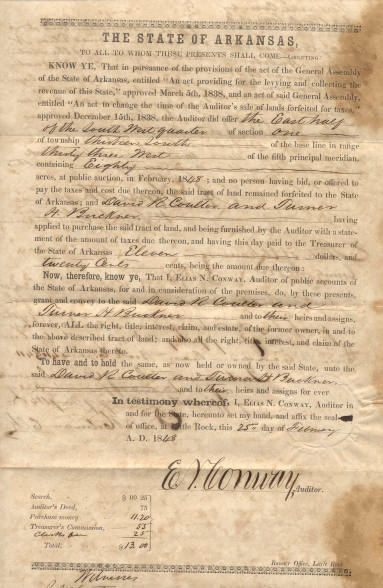 THE STATE OF ARKANSAS,
TO ALL TO WHOM THESE PRESENTS SHALL COME—GREETING:
KNOW YE, That in pursuance of the provisions of the act of the General Assembly
of the State of Arkansas, entitled "An act providing for the levying and collecting the
revenue of this State," approved March 5th, 1838, and an act of said General Assembly,
entitled "An act to change the time of the Auditor's sale of lands forfeited for taxes,"
approved December 15th, 1838, the Auditor did offer the East half
of the South West quarter of section one
of township thirteen South of the base line in range
thirty three West of the fifth principal meridian,
containing Eighty
acres, at public auction, in February, 1848; and no person having bid, or offered to
pay the taxes and cost due thereon, the said tract of land remained forfeited to the State
of Arkansas; and David R Coulter and Turner
H. Buckner, having
applied to purchase the said tract of land, and being furnished by the Auditor with a state-
ment of the amount of taxes due thereon, and having this day paid to the Treasurer of
the State of Arkansas Eleven dollars, and
twenty Cents cents, being the amount due thereon:
Now, therefore, know ye, That I, ELIAS N. CONWAY, Auditor of public accounts
of the State of Arkansas, for and in consideration of the premises, do, by these presents,
grant and convey to the said David R Coulter and
Turner H Buckner and to their heirs and assigns,
forever, ALL the right, title, interest, claim, and estate, of the former owner, in and to
the above described tract of land; and also all the right, title, interest, and claim of the
State of Arkansas thereto.
To have and to hold the same, as now held or owned by the said State, unto the
said David R Coulter and Turner H Buckner
and to their heirs and assigns for ever
In testimony whereof, I, ELIAS N. CONWAY, Auditor in
and for the State, hereunto set my hand, and affix the seal
of office, at Little Rock, this 25th day of
A. D. 1848
E N Conway, Auditor.
Search, $ 00 25
Auditor's Deed, 75
Purchase money 11.20
Treasurer's Commission, 55
Clerks fee 25
Total, $13 00
Banner Office, Little Rock
Witness